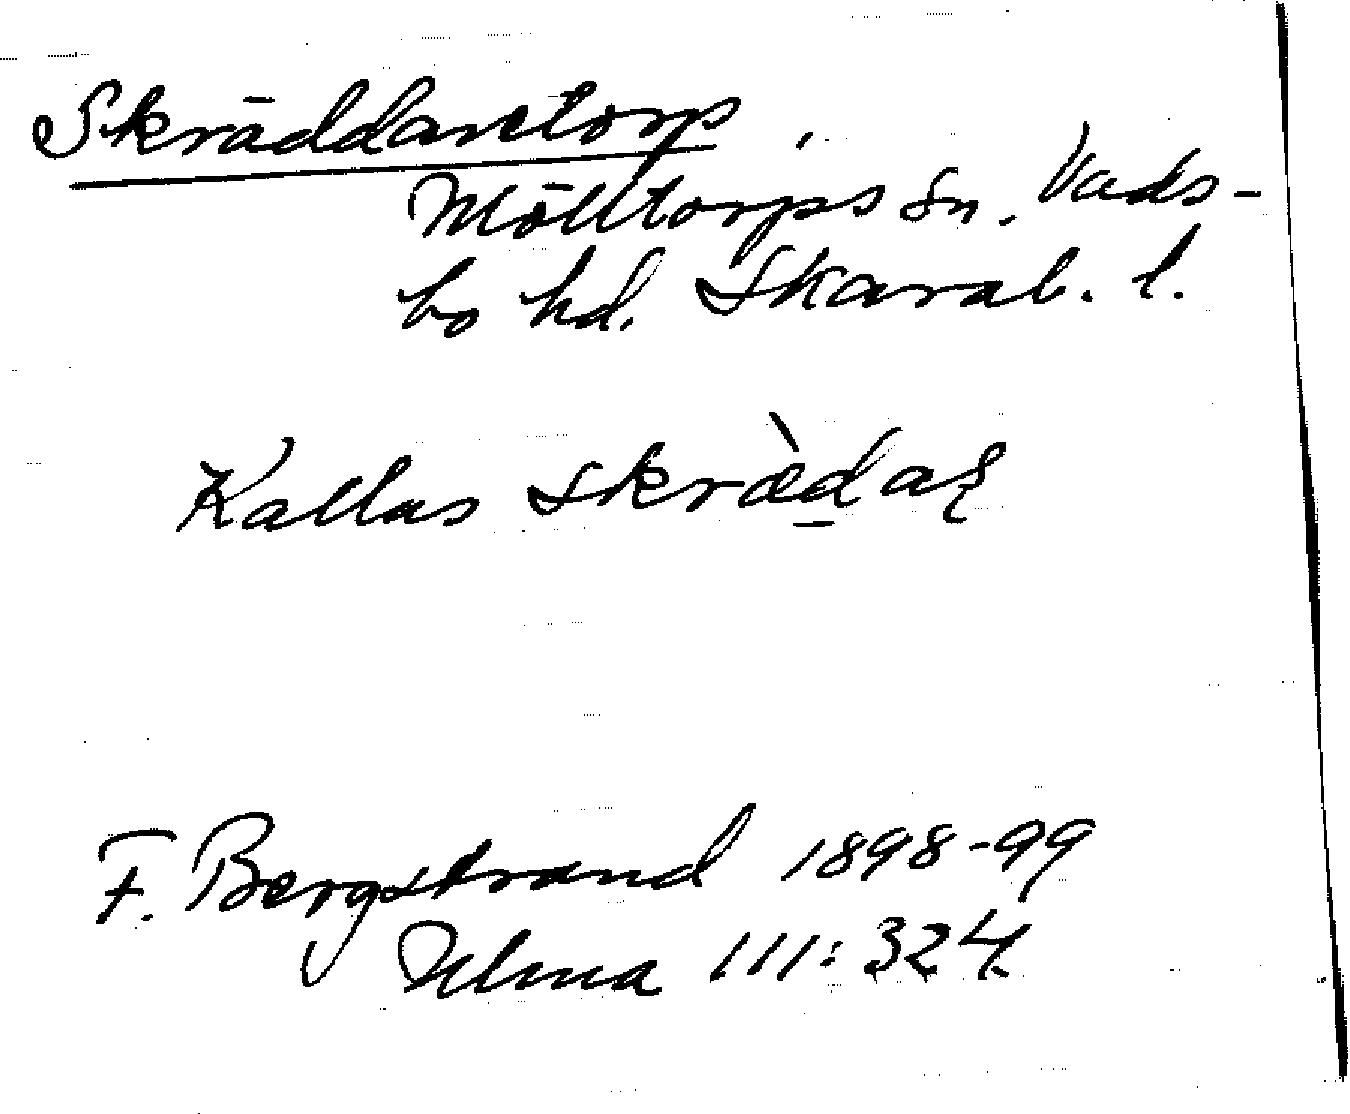 Skräddaretorp,
Mölltorps sn. Vads-
bo hd. Skarab. l.
Kallas skræ̀daʂ
F. Bergstrand 1898-99
Ulma 111:324